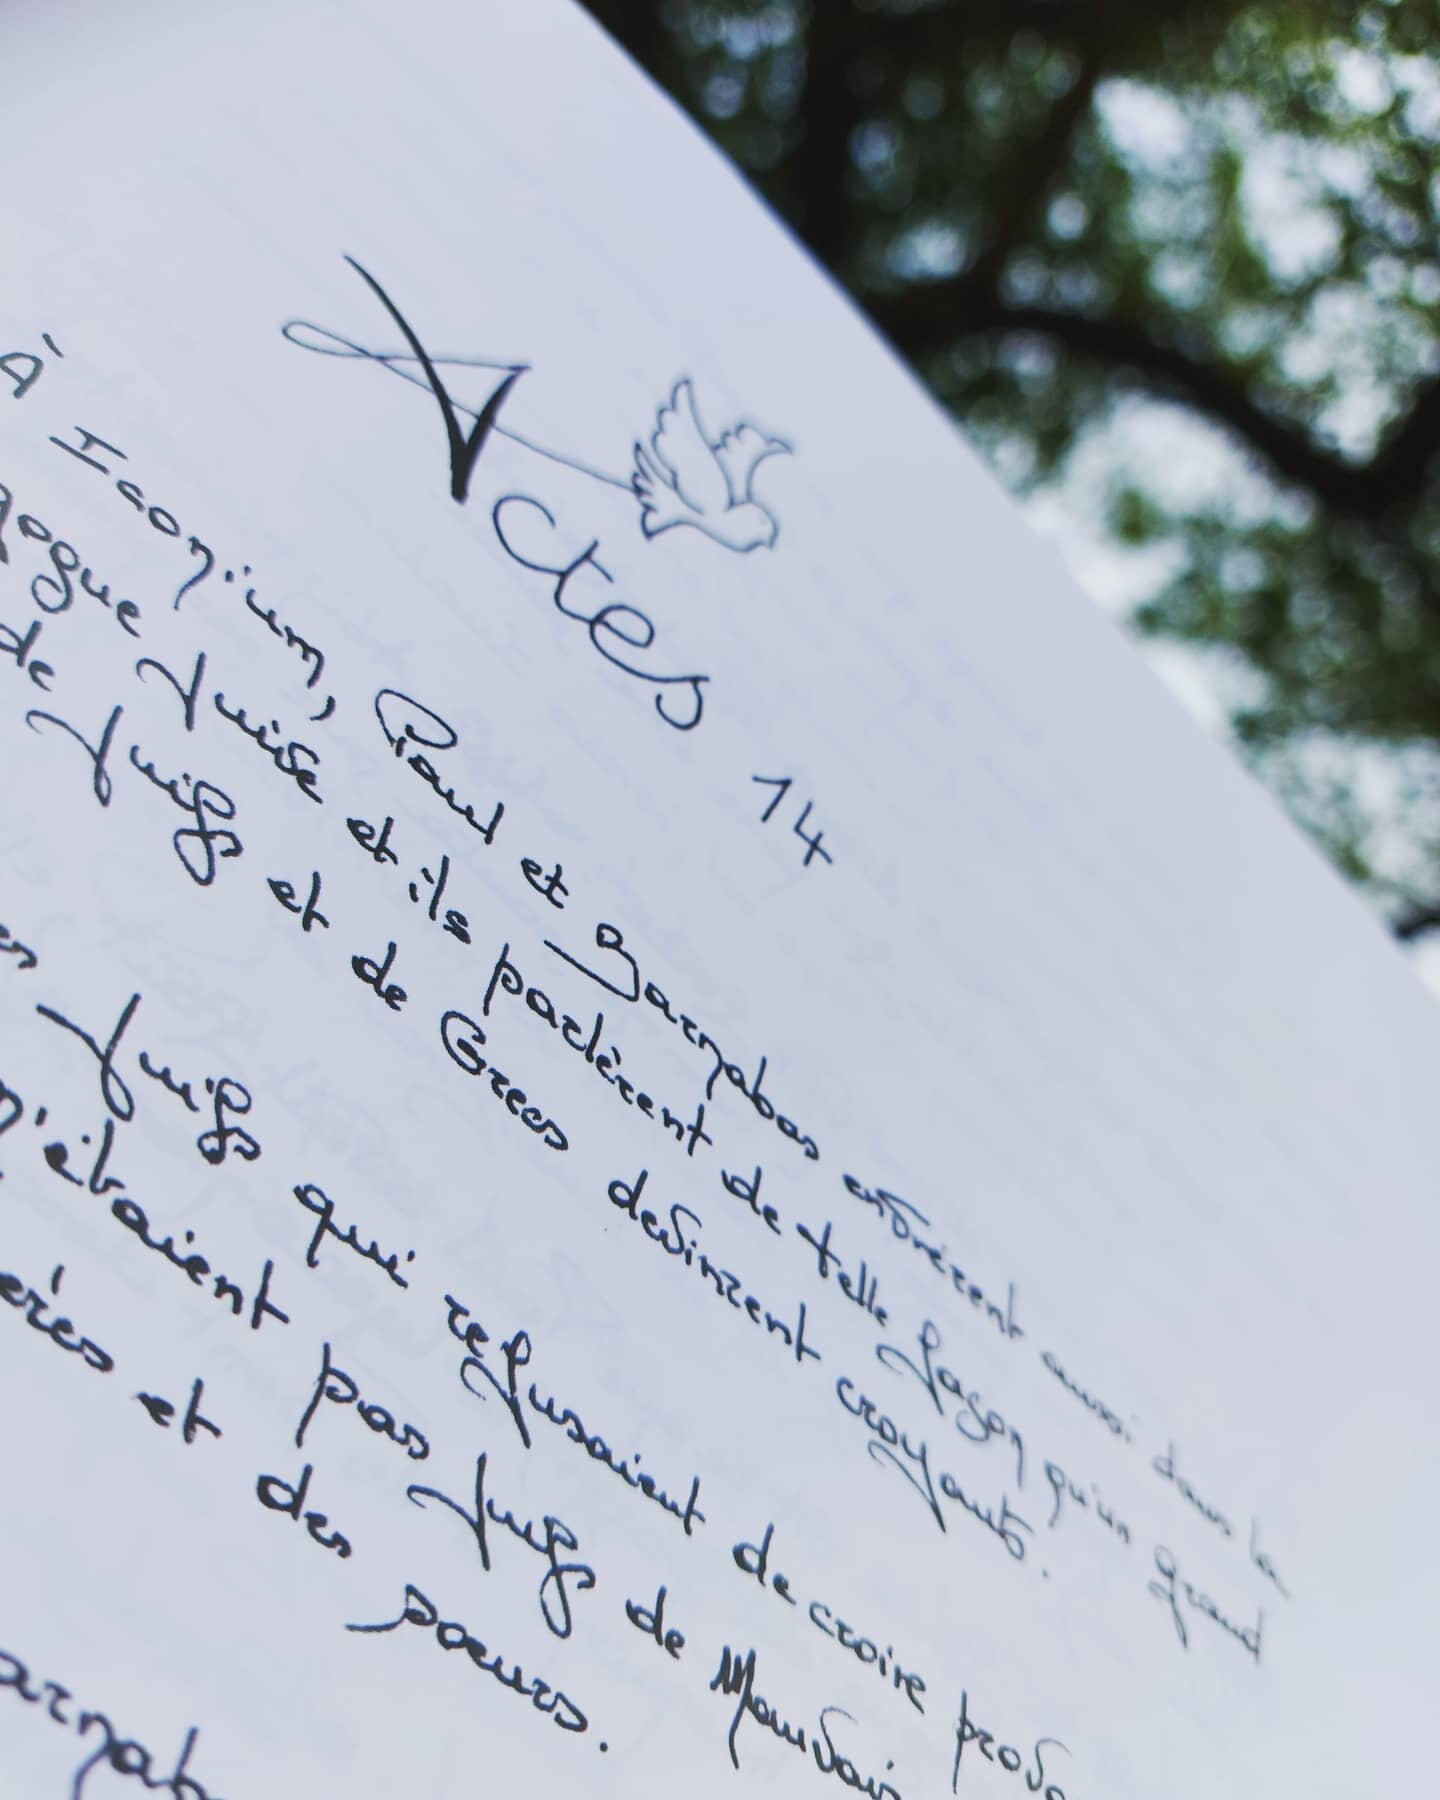 Actes 14
À Iconium, Paul et Barnabas entrèrent aussi dans la
gogue juive et ils parlèrent de telle façon qu'un grand
de Juifs et de Grecs devinrent croyants.
es Juifs qui refusaient de croire provo
n'étaient pas Juifs de mauvais
ères et des sœurs.
arnab